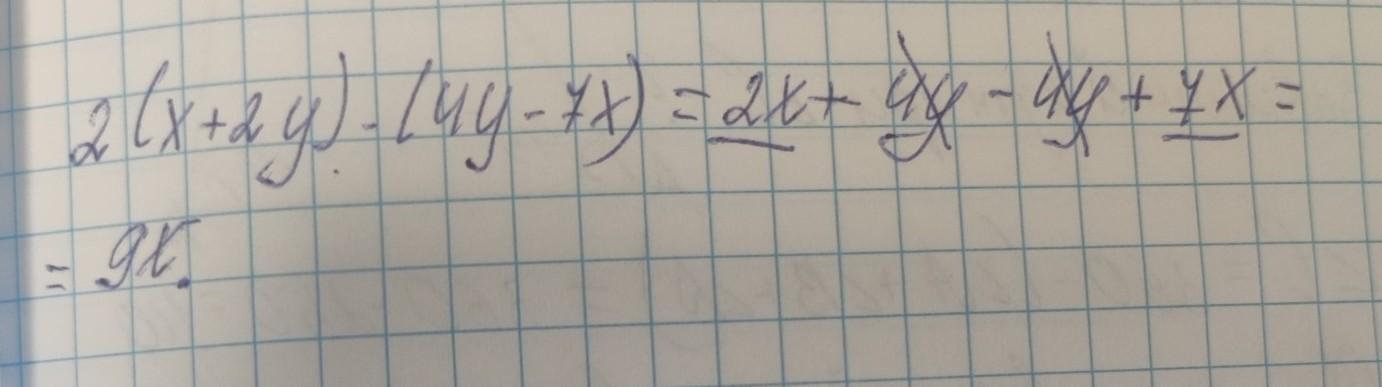 2(x+2y)-(4y-7x)=2x+4y-4y+7x=
=9x.